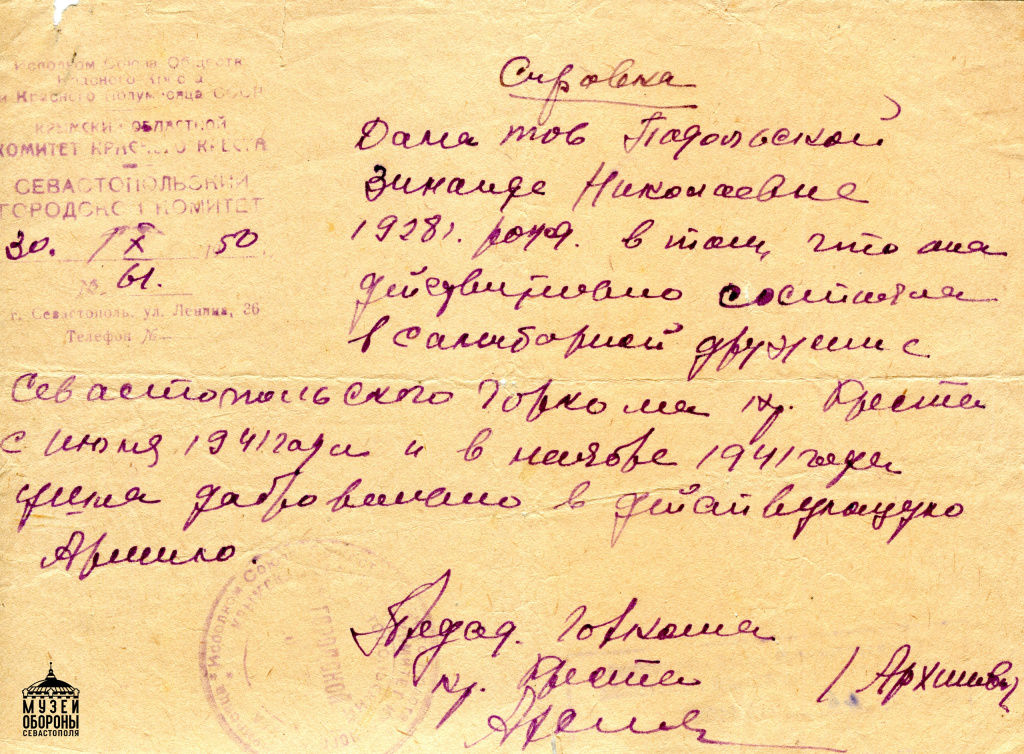 Исполком Союза Обществ
Красного Креста
и Красного Полумесяца СССР
КРЫМСКИЙ ОБЛАСТНОЙ
КОМИТЕТ КРАСНОГО КРЕСТА
СЕВАСТОПОЛЬСКИЙ
ГОРОДСКОЙ КОМИТЕТ
30. X 1950
№ 61.
г. Севастополь, ул. Ленина, 26
Телефон №
Справка
Дана тов Подольской
Зинаиде Николаевне
1928 г. рожд. в том, что она
действительно состояла
в санитарной дружине
Севастопольского Горкома кр. Креста
с июня 1941 года и в ноябре 1941 года
ушла добровольно в действующую
Армию.
Предсд. Горкома
кр. Креста
МУЗЕЙ
ОБОРОНЫ
СЕВАСТОПОЛЯ